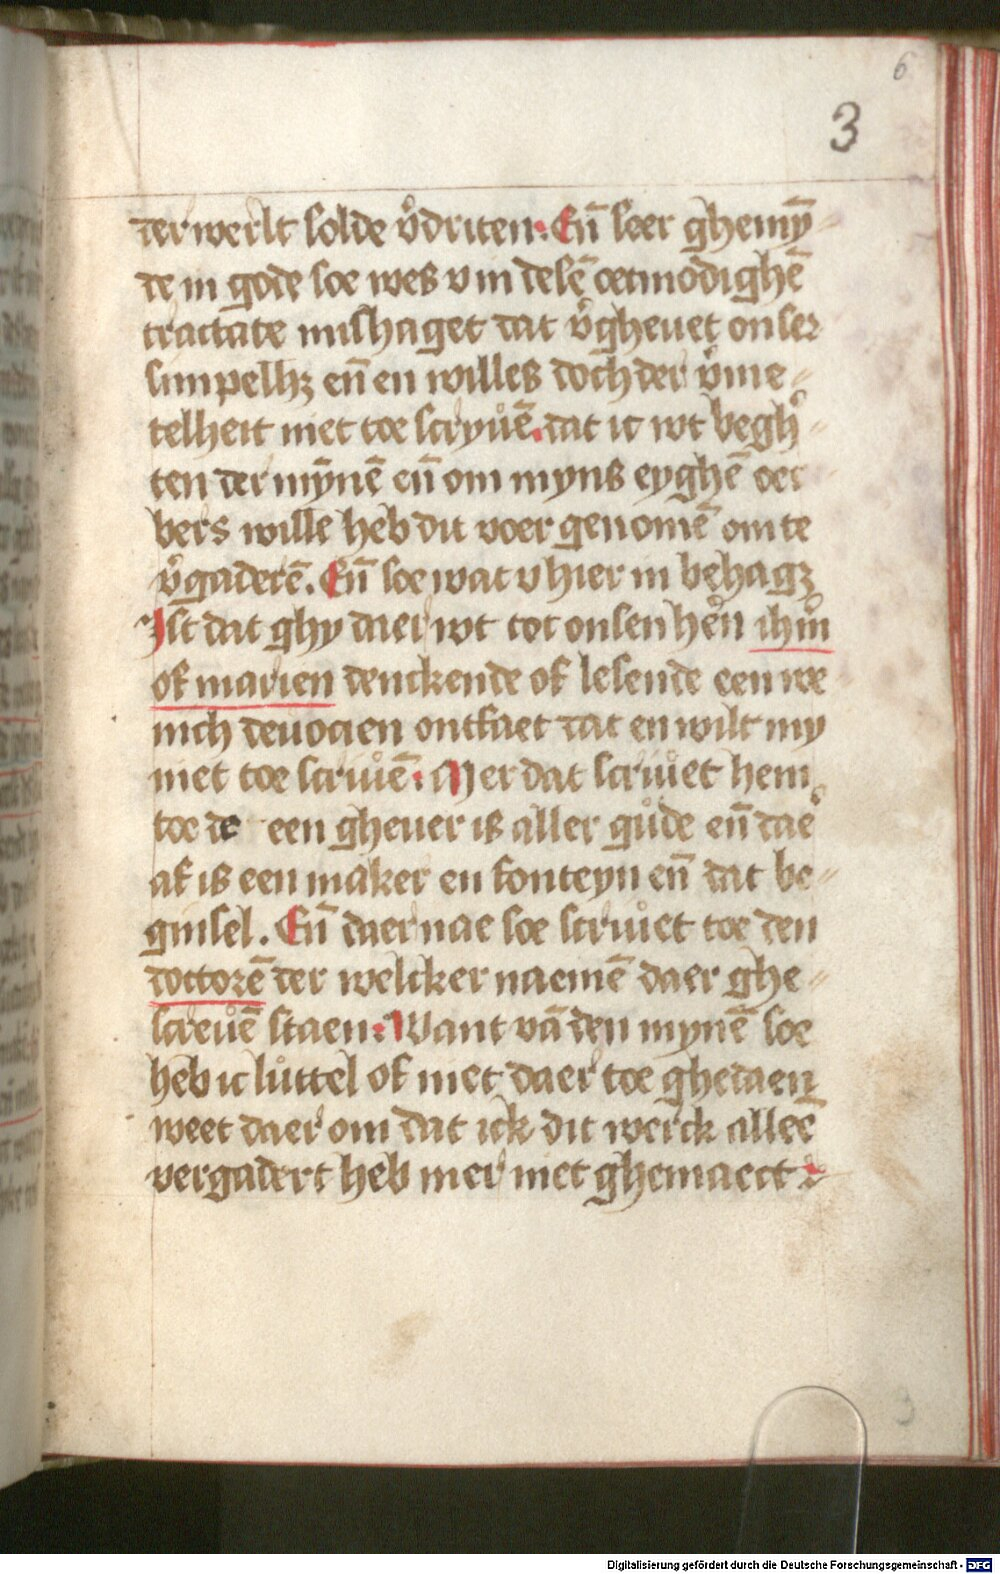 6
3
der werlt solde v᷎driten: En̄ soer ghemȳ-
de in gode soe wes v in desē oetmodighē
tractate mishaget dat v᷎gheuet onser
simpelhꝫ en̄ en willes doch der v᷎me-
telheit niet toe scryuē. dat ic wt begh᷎-
ten der mȳnē en̄ om myns eyghē oer
bers wille heb dit voer genomē om te
v᷎gaderē. En̄ soe wat v hier in behagꝫ
Ist dat ghy daer wt tot onsen hēn ihm̄
of marien denckende of lesende een we
nich deuocien ontfaet dat en wilt my
niet toe scriuē: Mer dat scriuet hem
toe de een gheuer is aller gůde en̄ dae᷎
af is een maker en fonteyn en̄ dat be-
ginsel. En̄ daer nae soe scriuet toe den
doctorē der welcker naemē daer ghe-
screuē staen: Want vā den mynē soe
heb ic lůttel of niet daer toe ghedaen
weet daer om dat ick dit werck alleē
vergadert heb mer niet ghemaect
3
Digitalisierung gefördert durch die Deutsche Forschungsgemeinschaft - DFG